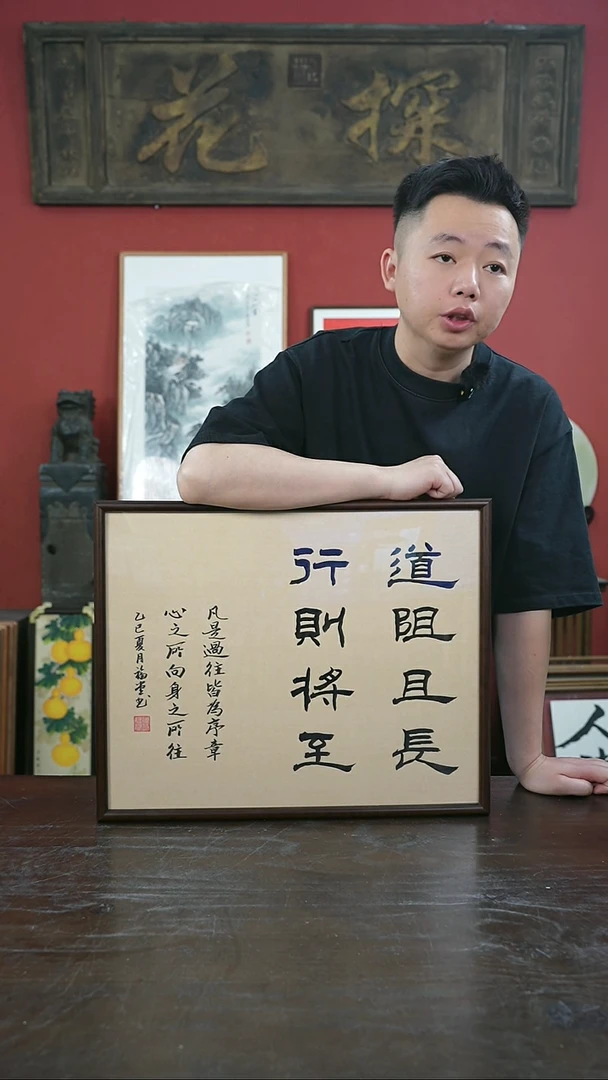 探花
道阻且長
行則将至
凡是過往皆為序章
心之所向身之所往
乙巳夏月福堂书
人